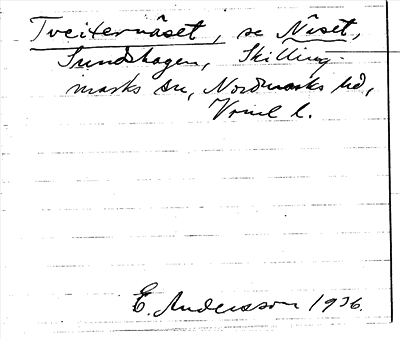 Tveiternäset, se Näset,
Sundhagen, Skilling-
marks sn, Nordmarks hd,
Vrml l.
E. Andersson 1936.